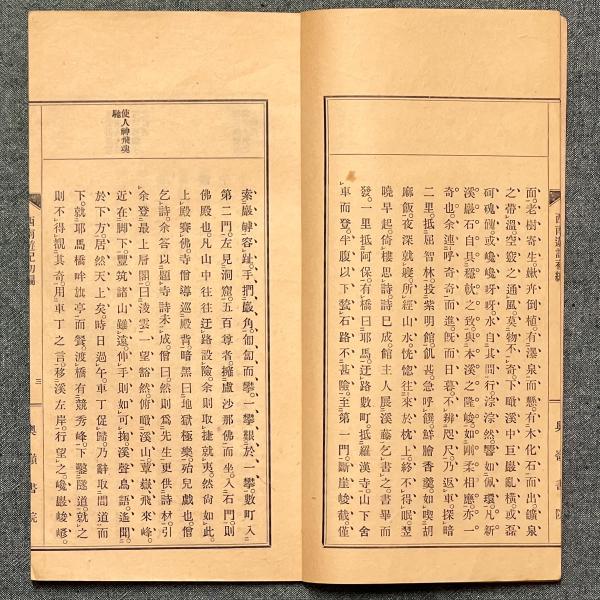 面。老樹寄生。欹卉倒植。有瀑泉而懸。有木化石而出。鑛泉
之帶温。空竅之通風。莫物不奇。下瞰溪中。巨巖亂橫。或磊
砢磈䃬。或巉巉呀呀。水自其間行。淙淙然。響如佩環。凡新
溪巖石自具穩欹之致。與本溪之隆峻。如剛柔相應。亦一
奇也。余連呼奇奇而進。既而日暮。不辨咫尺。乃返車探暗
二里。抵屈智林。投紫明館。飢甚。急呼饌。鮮膾香羹。如喫胡
麻飯。夜深就寢。所經山水恍惚往來於枕上。終不得眠。翌
曉早起。倚樓思詩。詩已成。館主人展溪藤乞書。之書畢而
發。一里抵阿保。有橋曰耶馬。迂路數町。抵羅漢寺。山下舍
車而登。半腹以下。甃石路不甚險。至第一門。斷崖峻截。僅
西南遊記初編
使人神飛魂
馳
索巖幹容趾。手捫巖角。匍匐而攀。一攀艱於一攀。數町入
第二門。左見洞窟。五百尊者擁盧沙那佛而坐。入石門。則
佛殿也。凡山中往往迂路設險。余則取捷就夷。然尚如此。
上殿賽佛。寺僧導巡殿背。暗黑曰地獄極樂。殆兒戲也。僧
乞詩。余答以題寺詩未成。僧曰。然則爲先生更供詩材。引
余登最上層閣。曰淩雲。一望豁然。俯瞰溪山。蕈嶽飛來峰。
近在脚下。豐筑諸山。雖遠伸手則如可掬。溪聲鳥語。遙聞
於下方。居然天上矣。時日過午。車丁促歸。乃辭取間道而
下。就耶馬橋畔旗亭而餐。渡橋有競秀峰。下鑿隧道。就之
則不得覩其奇。用車丁之言。移溪左岸。行望之。巉巖峻嶒。
西南遊記初編
三
奧嶺書院